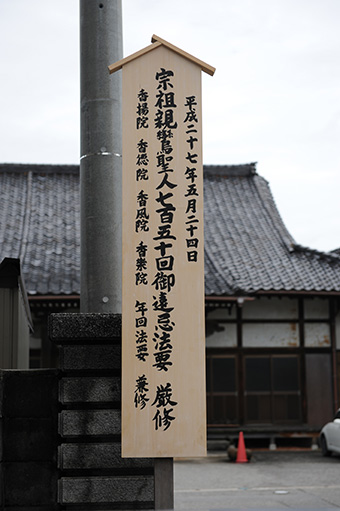 平成二十七年五月二十四日
宗祖親鸞聖人七百五十回御遠忌法要 厳修
香揚院 香徳院 香風院 香樂院 年回法要 兼修